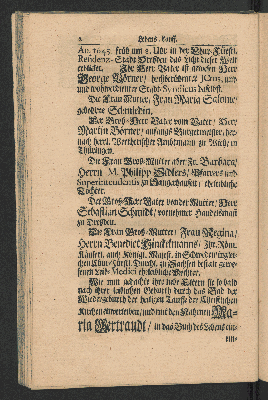 2. Lebens-Lauff.
An. 1645. früh um 2. Uhr in der Chur-Fürstl.
Residenz-Stadt Dreßden das Licht dieser Welt
erblicket. Ihr Herr Vater ist gewesen Herr
George Börner, hochberühmter JCtus, und
und wohlverdienter Stadt-Syndicus daselbst.
Die Frau Mutter, Frau Maria Salome,
gebohrne Schmiedin.
Der Groß-Herr Vater vom Vater, Herr
Martin Börner, anfangs Burgemeister, her-
nach herrl. Werthernscher Amtmann zu Wiehe, in
Thüringen.
Die Frau Groß-Mutter aber Fr. Barbara,
Herrn M. Philipp Sidlers, Pfarrers und
Superintendentis zu Sangerhausen, eheleibliche
Tochter.
Der Groß-Herr Vater von der Mutter, Herr
Sebastian Schmidt, vornehmer Handelsmann
zu Dreßden.
Die Frau Groß-Mutter, Frau Regina,
Herrn Benedict Hinckelmanns, Ihr. Röm.
Käyserl. auch Königl. Majest. in Schweden, ingleichen
Chur-Fürstl. Durchl. zu Sachsen bestalt gewesenen
Leib-Medici eheleibliche Tochter.
Wie nun gedachte ihre liebe Eltern sie so bald
nach ihrer leiblichen Gebuhrt durch das Bad der
Wiedergeburth der heiligen Tauffe der Christlichen
Kirchen einverleiben, und mit den Nahmen Ma-
ria Gertraudt, in das Buch des Lebens ein-